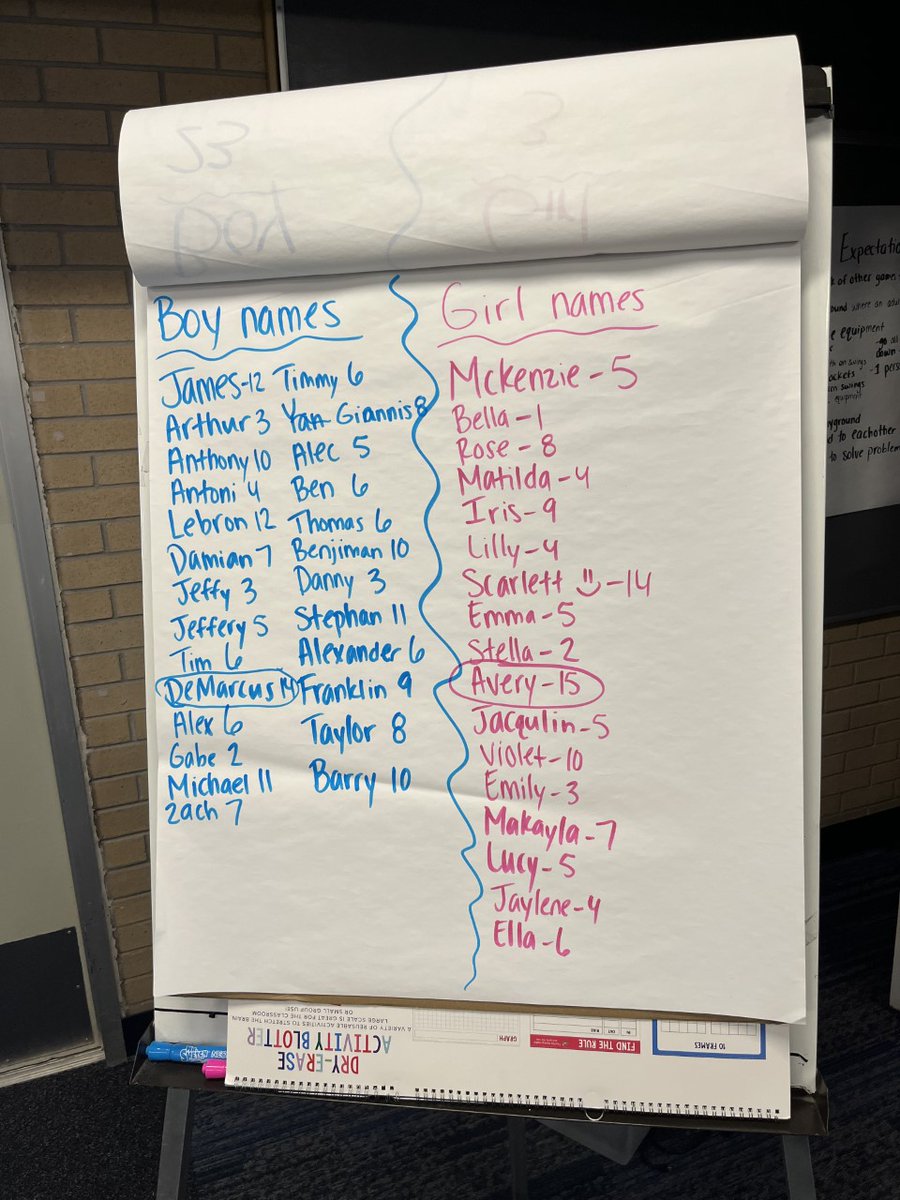 Boy names
James-12 Timmy 6
Arthur 3 Yan Giannis 8
Anthony 10 Alec 5
Antoni 4 Ben 6
Lebron 12 Thomas 6
Damian 7 Benjiman 10
Jeffy 3 Danny 3
Jeffery 5 Stephan 11
Tim 6 Alexander 6
DeMarcus 14 Franklin 9
Alex 6 Taylor 8
Gabe 2 Barry 10
Michael 11
Zach 7
Girl names
Mckenzie - 5
Bella - 1
Rose - 8
Matilda - 4
Iris - 9
Lilly - 4
Scarlett - 14
Emma - 5
Stella - 2
Avery - 15
Jacqulin - 5
Violet - 10
Emily - 3
Makayla - 7
Lucy - 5
Jaylene - 4
Ella - 6
Expectatio
of other game
ound where an adu
equipment
on swings
ockets - 1 pers
swings
equipment
yground
d to eachother
to solve problem
DRY-ERASE
ACTIVITY BLOTTER
A VARIETY OF REUSABLE ACTIVITIES TO STRETCH THE BRAIN
LARGE SCALE IS GREAT FOR THE CLASSROOM
OR SMALL GROUP USE!
GRAPH
FIND THE RULE
10 FRAMES